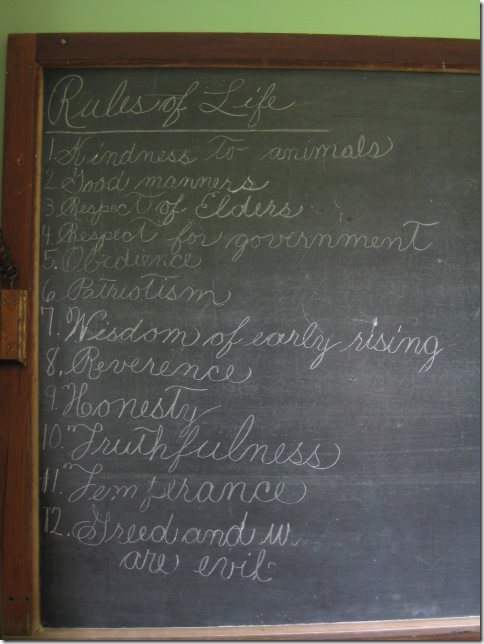 Rules of Life
1. Kindness to animals
2. Good manners
3. Respect of Elders
4. Respect for government
5. Obedience
6. Patriotism
7. Wisdom of early rising
8. Reverence
9. Honesty
10. Truthfulness
11. Temperance
12. Greed and
are evil